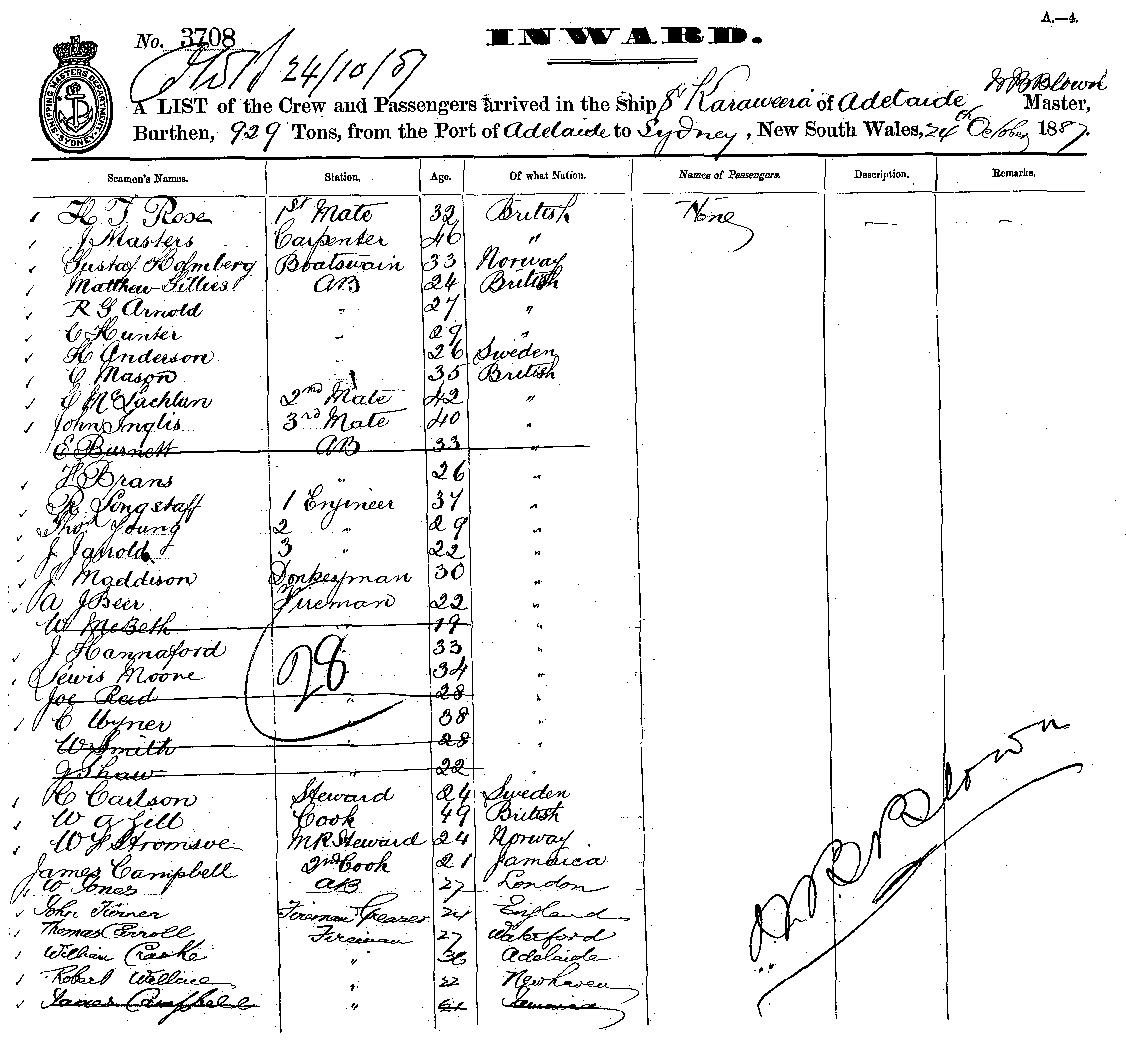 A.—4.
No. 3708 INWARD.
24/10/87
SHIPPING MASTERS DEPARTMENT SYDNEY
A LIST of the Crew and Passengers arrived in the Ship Karaweera of Adelaide Master,
Burthen, 929 Tons, from the Port of Adelaide to Sydney, New South Wales, 24th October 1887.
Seamen's Names. Station. Age. Of what Nation. Names of Passengers. Description. Remarks.
Rose 1st Mate 32 British None — —
J Masters Carpenter 46 "
Gustaf Holmberg Boatswain 33 Norway
Matthew Gillies AB 24 British
R G Arnold " 27 "
C Hunter " 29 "
Anderson 26 Sweden
C Mason 35 British
McLachlan 2nd Mate 42 "
John Inglis 3rd Mate 40 "
E Burnett AB 33 "
Brans " 26 "
R Longstaff 1 Engineer 37 "
Thos Young 2 " 29 "
J Jarrold 3 " 22 "
J Maddison Donkeyman 30 "
A J Beer Fireman 22 "
W McBeth " 19 "
J Hannaford 33 "
Lewis Moone 34 "
28
Joe Reid " 28 "
C Wyner " 38 "
W Smith 28 "
J Shaw " 22 "
Carlson Steward 24 Sweden
W A Gill Cook 49 British
W Stromsoe MR Steward 24 Norway
James Campbell 2nd Cook 21 Jamaica
W Jones AB 27 London
John Turner Fireman Greaser 24 England
Thomas Fireman 27 Waterford
William " 36 Adelaide
Robert Wallace " 22 Newhaven
James Campbell " 21 Jamaica